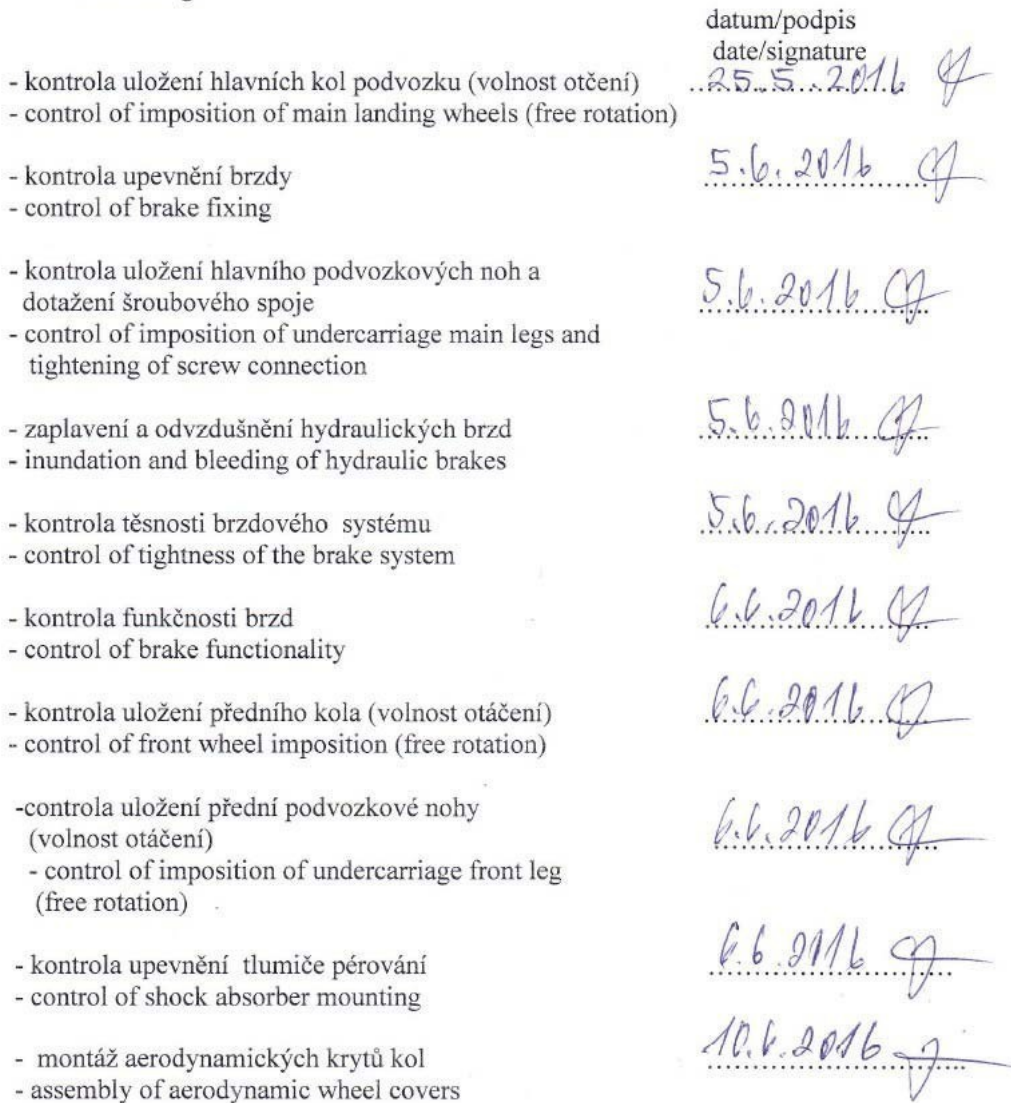 datum/podpis
date/signature
- kontrola uložení hlavních kol podvozku (volnost otčení) 25.5.2016
- control of imposition of main landing wheels (free rotation)
- kontrola upevnění brzdy 5.6.2016
- control of brake fixing
- kontrola uložení hlavního podvozkových noh a
dotažení šroubového spoje 5.6.2016
- control of imposition of undercarriage main legs and
tightening of screw connection
- zaplavení a odvzdušnění hydraulických brzd 5.6.2016
- inundation and bleeding of hydraulic brakes
- kontrola těsnosti brzdového systému 5.6.2016
- control of tightness of the brake system
- kontrola funkčnosti brzd 6.6.2016
- control of brake functionality
- kontrola uložení předního kola (volnost otáčení) 6.6.2016
- control of front wheel imposition (free rotation)
-controla uložení přední podvozkové nohy
(volnost otáčení) 6.6.2016
- control of imposition of undercarriage front leg
(free rotation)
- kontrola upevnění tlumiče pérování 6.6.2016
- control of shock absorber mounting
- montáž aerodynamických krytů kol 10.6.2016
- assembly of aerodynamic wheel covers